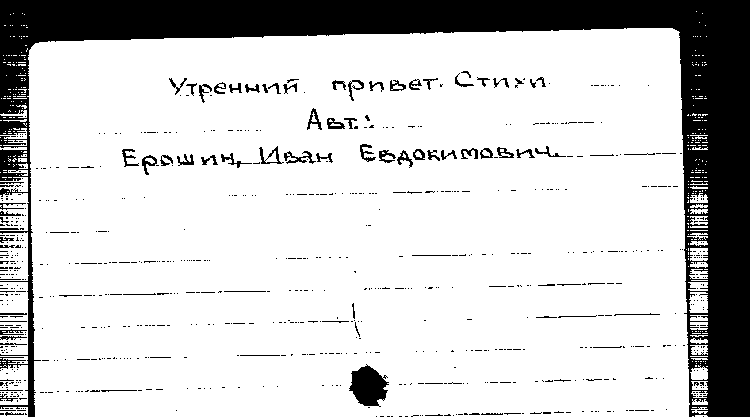 Утренний привет. Стихи
Авт.:
Ерошин, Иван Евдокимович.